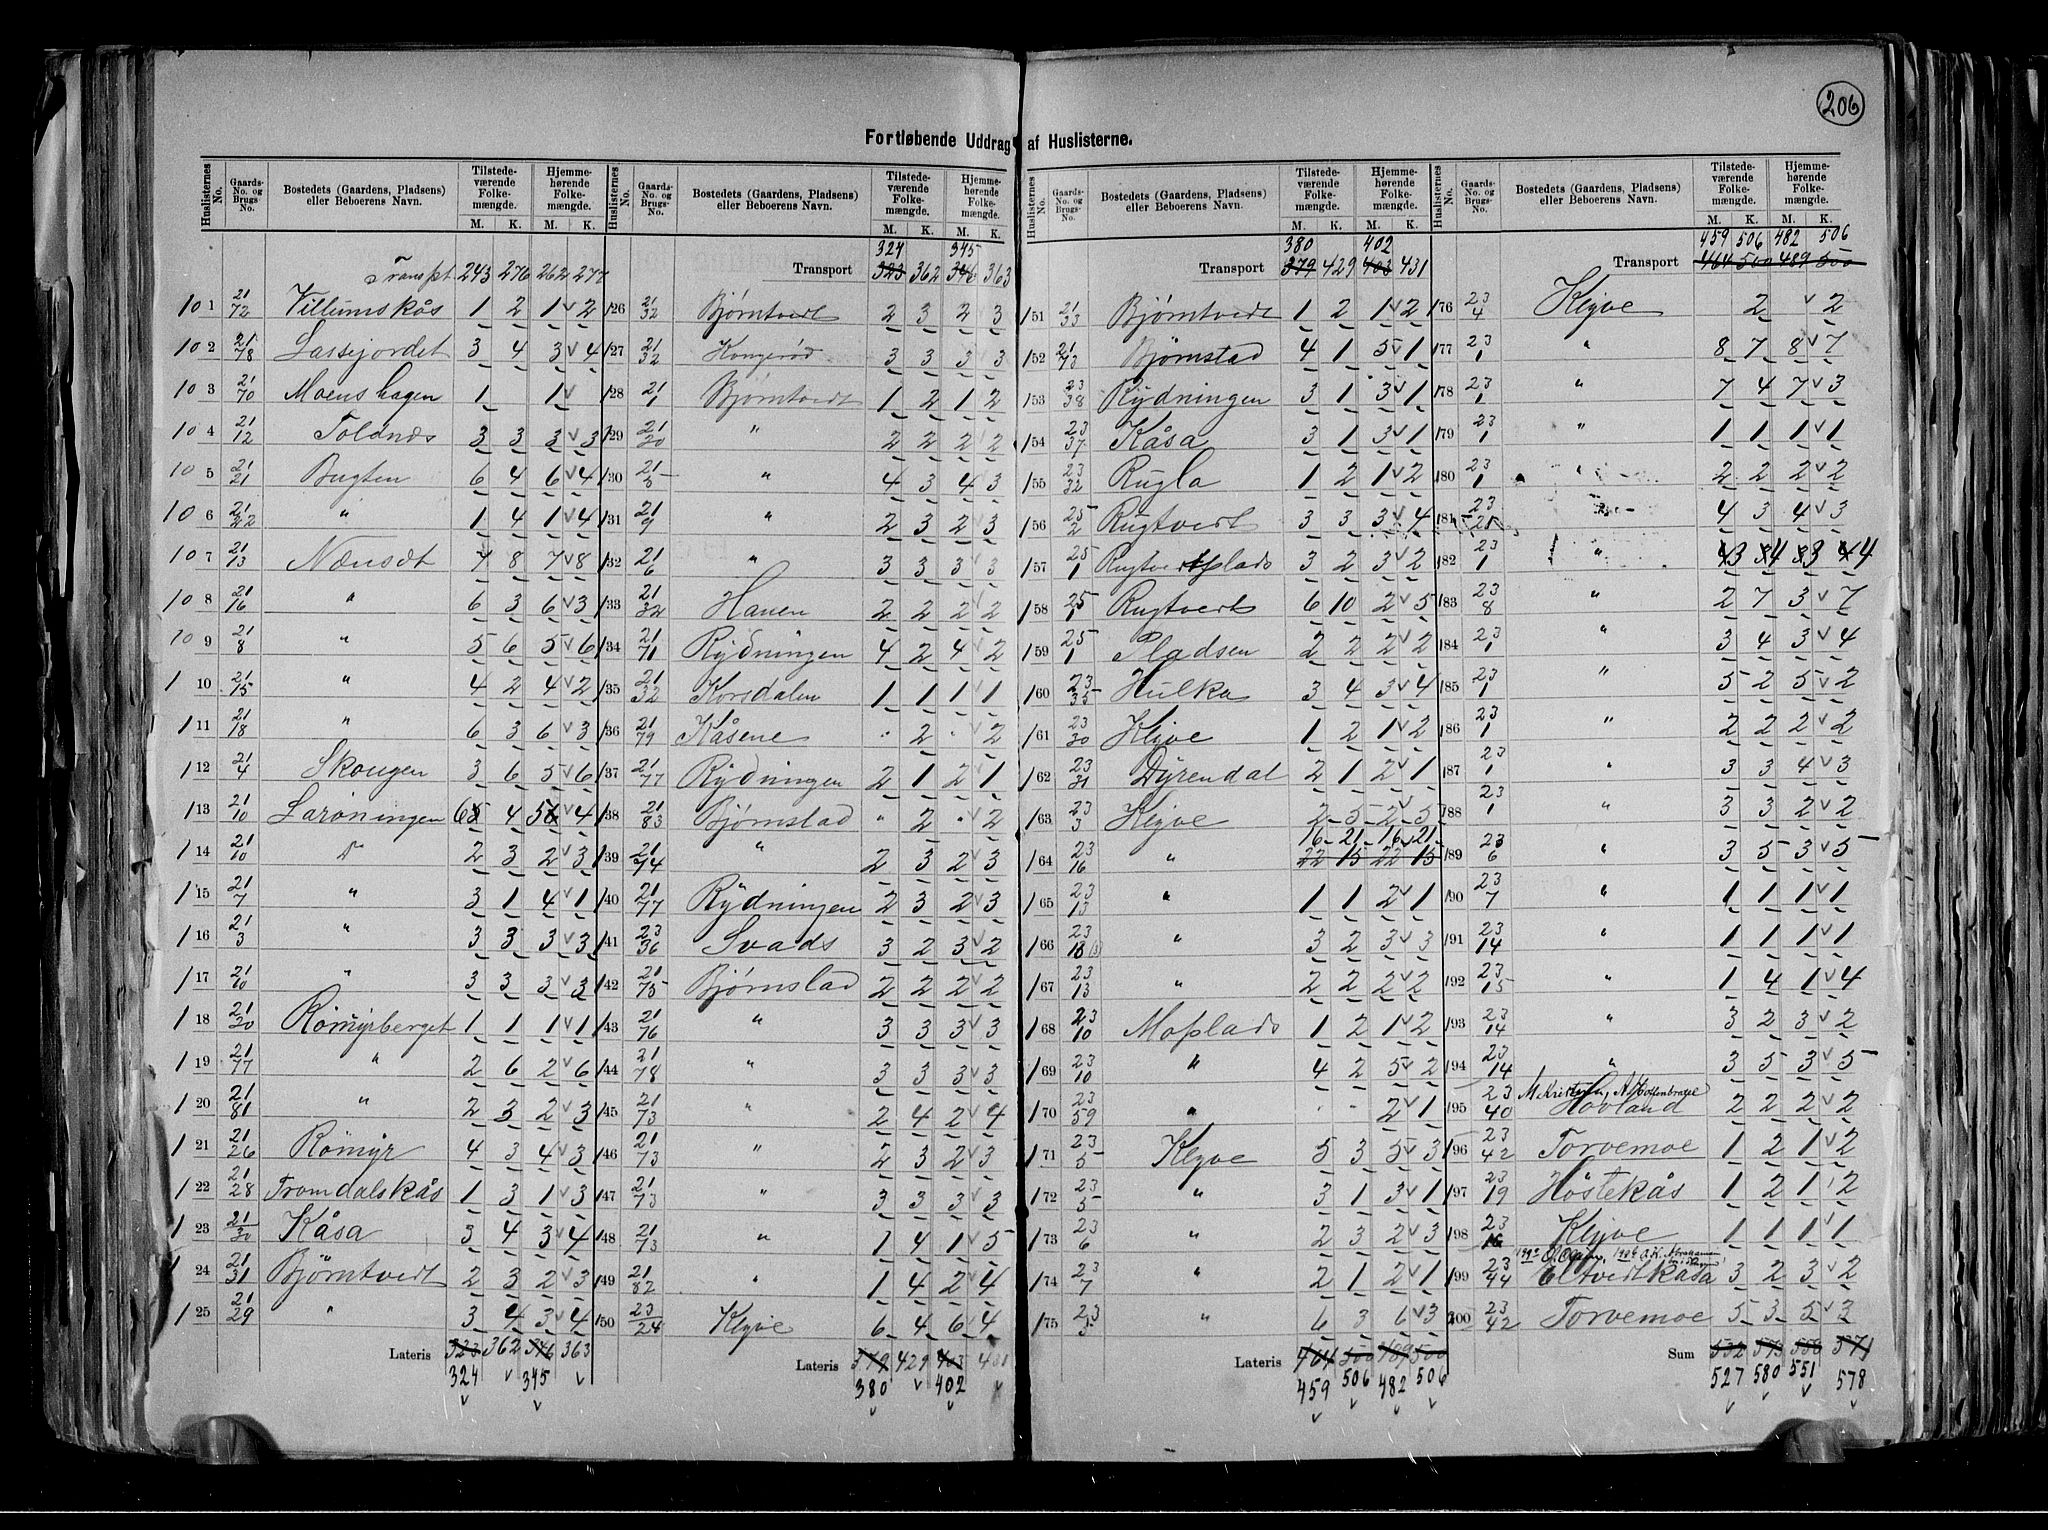 206
Fortløbende Uddrag af Huslisterne.
Huslisternes No. | Gaards-No. og Brugs-No. | Bostedets (Gaardens, Pladsens) eller Beboerens Navn. | Tilstedeværende Folkemængde. M. K. | Hjemmehørende Folkemængde. M. K.
Transpt. 243 276 262 277
101 21/72 Villumskås 1 2 1 2
102 21/78 Lassejordet 3 4 3 4
103 21/70 Moenshagen 1 1
104 21/12 Tolånds 3 3 3 3
105 21/21 Bugten 6 4 6 4
106 21/22 " 1 4 1 4
107 21/13 Nænsæt 7 8 7 8
108 21/16 " 6 3 6 3
109 21/8 " 5 6 5 6
110 21/15 " 4 2 4 2
111 21/18 " 6 3 6 3
112 21/4 Skougen 3 6 5 6
113 21/10 Laroningen 6 4 5 4
114 21/10 " 2 3 2 3
115 21/7 " 3 1 4 1
116 21/3 " 3 3 3 3
117 21/10 " 3 3 3 3
118 21/20 Römyrberget 1 1 1 1
119 21/77 " 2 6 2 6
120 21/81 " 2 3 2 3
121 21/26 Römyr 4 3 4 3
122 21/28 Tromdalskås 1 3 1 3
123 21/30 Kåsa 3 4 3 4
124 21/31 Björntvedt 2 3 2 3
125 21/29 " 3 4 3 4
Lateris 323 362 346 363
324 345
Huslisternes No. | Gaards-No. og Brugs-No. | Bostedets (Gaardens, Pladsens) eller Beboerens Navn. | Tilstedeværende Folkemængde. M. K. | Hjemmehørende Folkemængde. M. K.
324 345
Transport 323 362 346 363
126 21/32 Bjørntvedt 2 3 2 3
127 21/32 Kongerød 3 3 3 3
128 21/1 Bjørntvedt 1 2 1 2
129 21/20 " 2 2 2 2
130 21/5 " 4 3 4 3
131 21/9 " 2 3 2 3
132 21/6 " 3 3 3 3
133 21/32 Hauen 2 2 2 2
134 21/71 Rydningen 4 2 4 2
135 21/32 Korsdalen 1 1 1 1
136 21/79 Kåsene 2 2
137 21/77 Rydningen 2 1 2 1
138 21/83 Bjørnstad " 2 " 2
139 21/74 " 2 3 2 3
140 21/77 Rydningen 2 3 2 3
141 23/36 Svads 3 2 3 2
142 21/75 Bjørnstad 2 2 2 2
143 21/76 " 3 3 3 3
144 21/78 " 3 3 3 3
145 21/73 2 4 2 4
146 21/73 " 2 3 2 3
147 21/73 " 3 3 3 3
148 21/73 " 1 4 1 5
149 21/82 " 1 4 2 4
150 23/24 Klyve 6 4 6 4
Lateris 379 429 403 431
380 402
Huslisternes No. | Gaards-No. og Brugs-No. | Bostedets (Gaardens, Pladsens) eller Beboerens Navn. | Tilstedeværende Folkemængde. M. K. | Hjemmehørende Folkemængde. M. K.
380 402
Transport 379 429 403 431
151 21/33 Bjørntvedt 1 2 1 2
152 21/73 Bjørnstad 4 1 5 1
153 23/38 Rydningen 3 1 3 1
154 23/37 Kåsa 3 1 3 1
155 23/32 Rugla 1 2 1 2
156 25/2 Rugtvedt 3 3 3 4
157 25/1 Rugtvedtplads 3 2 3 2
158 25/1 Rugtvedt 6 10 2 5
159 25/1 Pladsen 2 2 2 2
160 23/35 Hulka 3 4 3 4
161 23/30 Klyve 1 2 1 2
162 23/31 Dyrendal 2 1 2 1
163 23/3 Klyve 2 5 2 5
16 21 16 21
164 23/16 " 22 15 22 15
165 23/13 " 1 1 2 1
166 23/18 (3) " 3 2 3 3
167 23/13 " 2 2 2 2
168 23/10 Moplads 1 2 1 2
169 23/10 " 4 2 5 2
170 23/59 " 2 1
171 23/5 Klyve 5 3 5 3
172 23/5 " 3 1 3 1
173 23/6 " 2 3 2 3
174 23/7 " 2 1 2 1
175 23/5 " 6 3 6 3
Lateris 464 500 489 500
459 506 482 506
Huslisternes No. | Gaards-No. og Brugs-No. | Bostedets (Gaardens, Pladsens) eller Beboerens Navn. | Tilstedeværende Folkemængde. M. K. | Hjemmehørende Folkemængde. M. K.
459 506 482 506
Transport 464 500 489 500
176 23/4 Klyve 2 2
177 23/1 " 8 7 8 7
178 23/1 " 7 4 7 3
179 23/1 " 1 1 1 1
180 23/1 " 2 2 2 2
181 23/21 " 4 3 4 3
182 23/1 " 3 4 3 4
183 23/8 " 2 7 3 7
184 23/1 " 3 4 3 4
185 23/1 " 5 2 5 2
186 23/1 " 2 2 2 2
187 23/1 " 3 3 4 3
188 23/1 " 3 3 2 2
189 23/6 " 3 5 3 5
190 23/7 " 1 1 1 1
191 23/14 " 1 1 1 1
192 23/15 " 1 4 1 4
193 23/14 " 3 2 3 2
194 23/14 " 3 5 3 5
195 23/40 Hovland 2 2 2 2
196 23/42 Torvemoe 1 2 1 2
197 23/19 Höstekås 1 2 1 2
198 23/16 Klyve 1 1 1 1
199 23/44 Eltvedtkåsa 3 2 3 2
200 23/42 Torvemoe 5 3 5 3
Sum 532 573 558 571
527 580 551 578